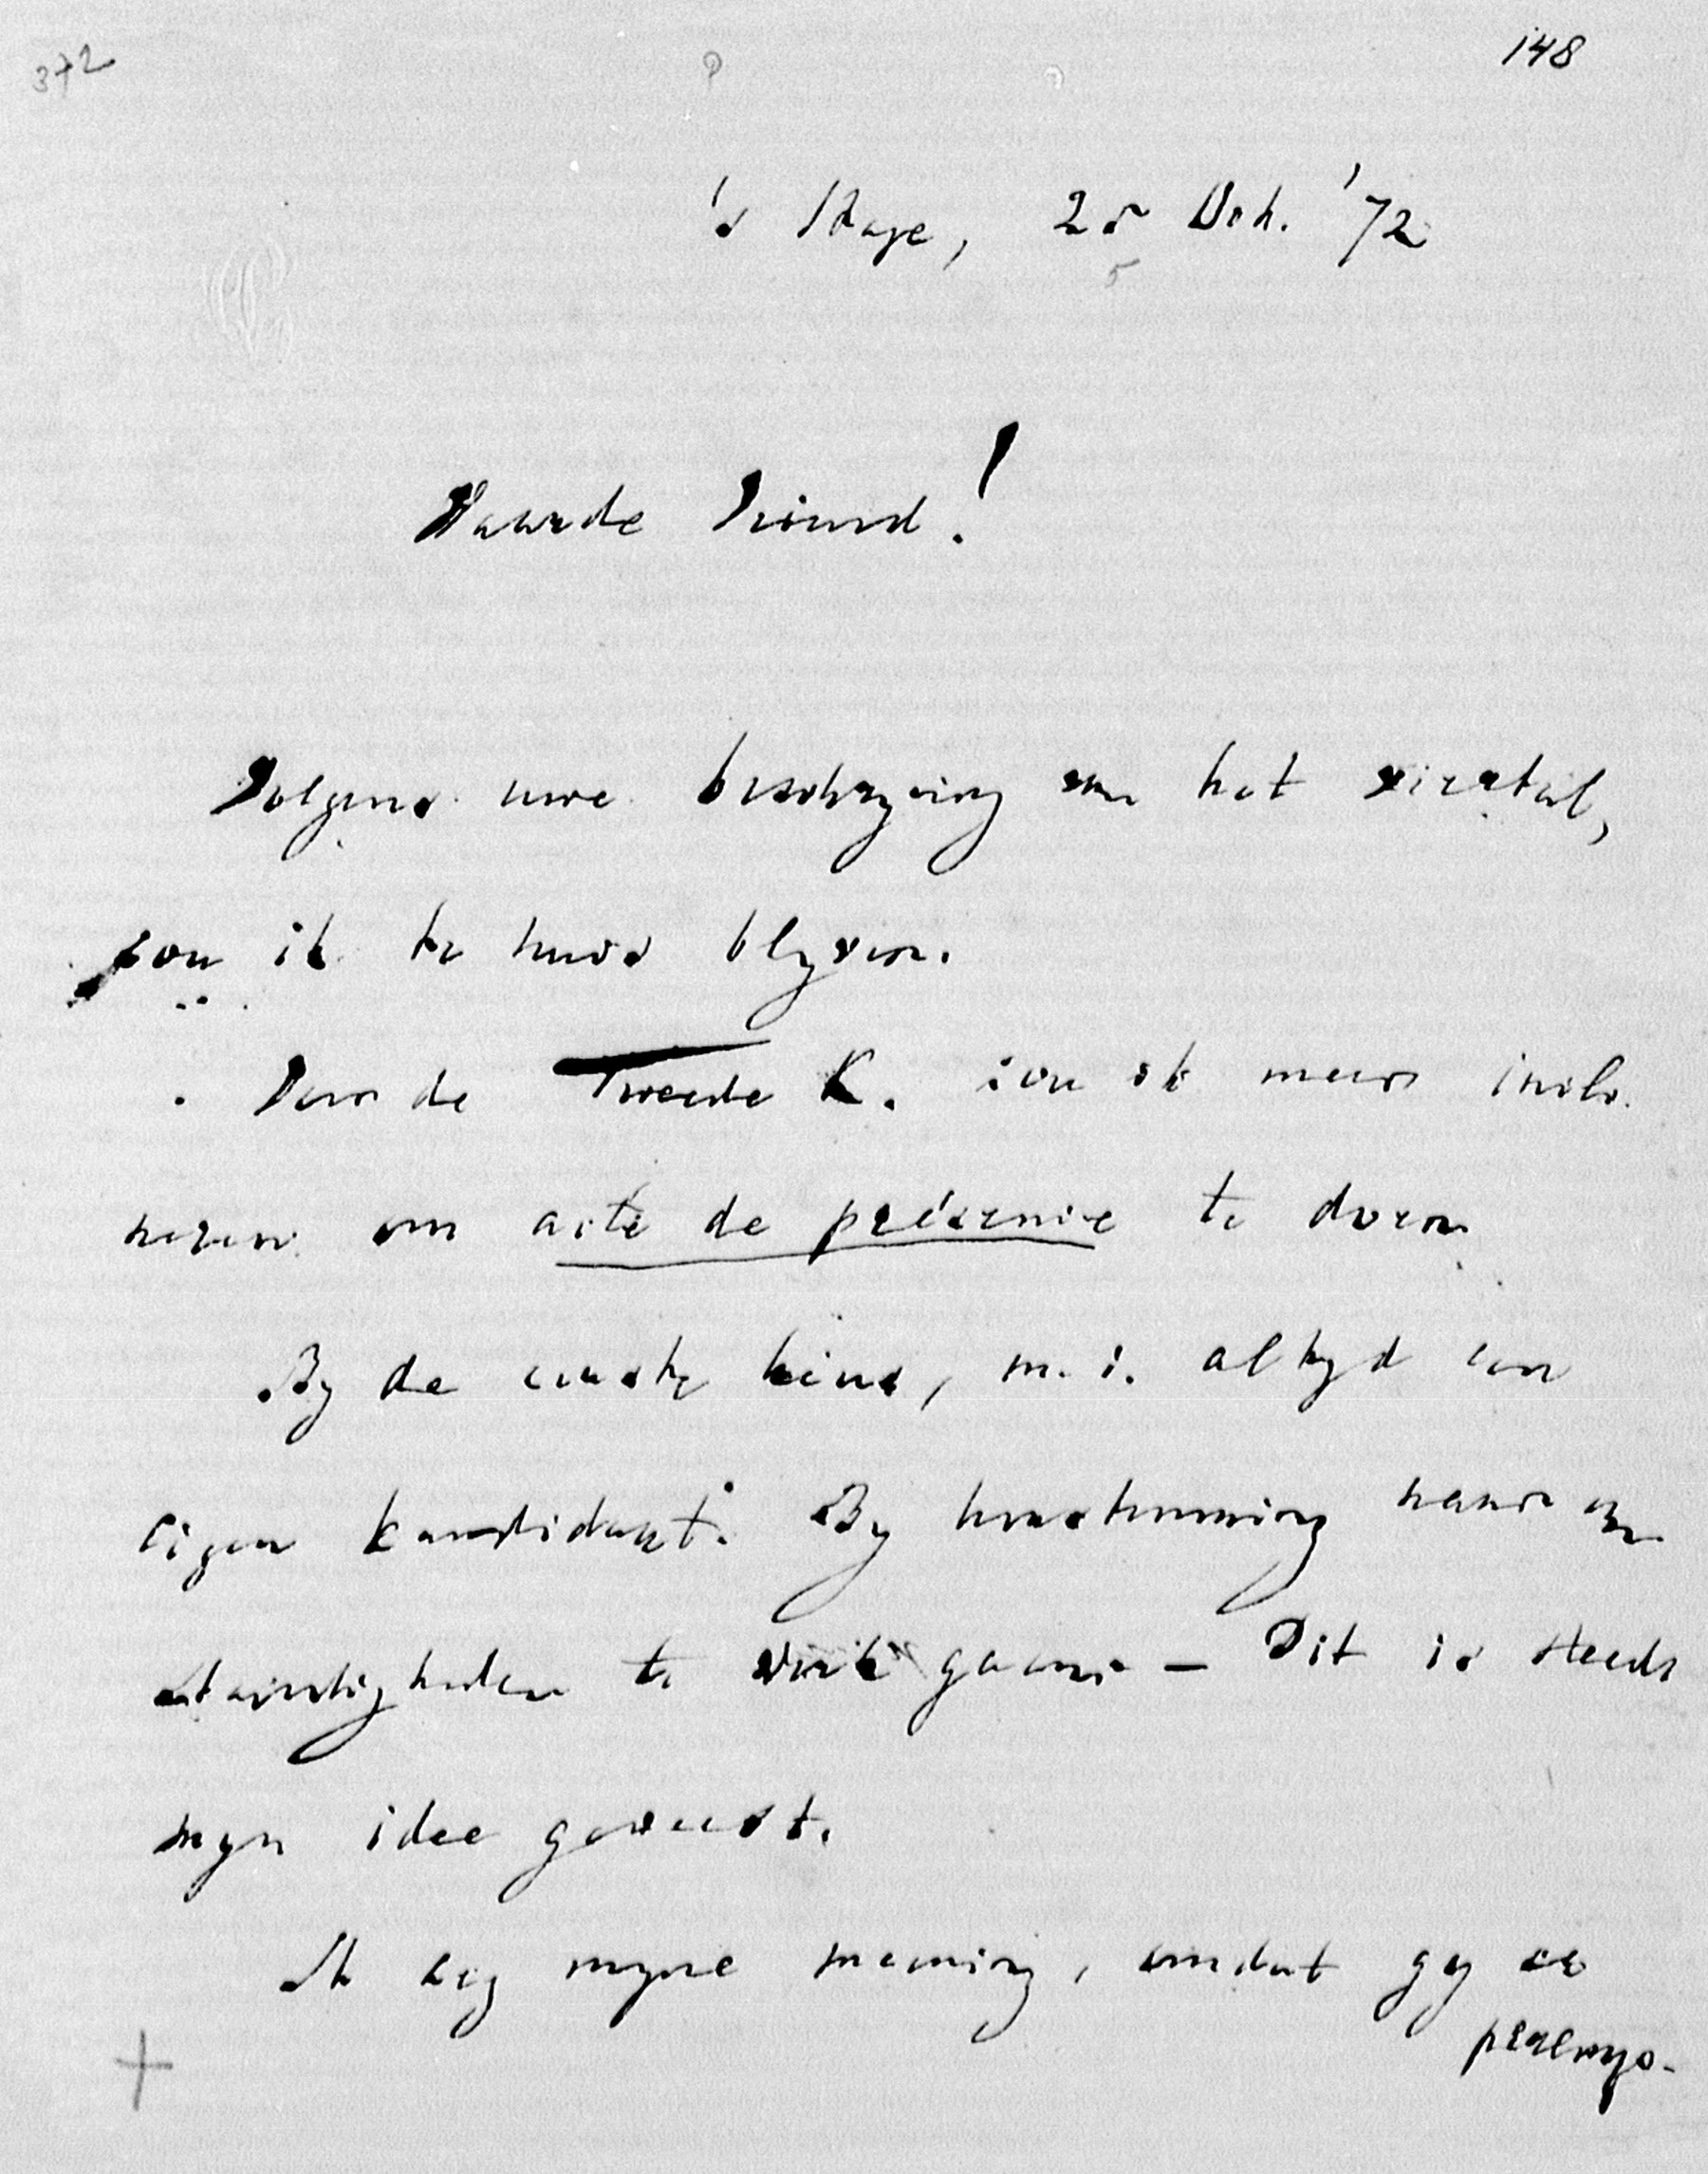 372
148
's Hage, 25 Oct. '72
5
Waarde Vriend!
Volgens uwe beschryving van het viertal,
zou ik te huis blyven.
Voor de Tweede K. zou ik meer incli-
neren om acte de présence te doen.
By de eerste keus, m.i. altyd een
eigen kandidaat. By herstemming naar om
standigheden te werk gaan — Dit is steeds
myn idee geweest.
Ik zeg myne mening, omdat gy ze